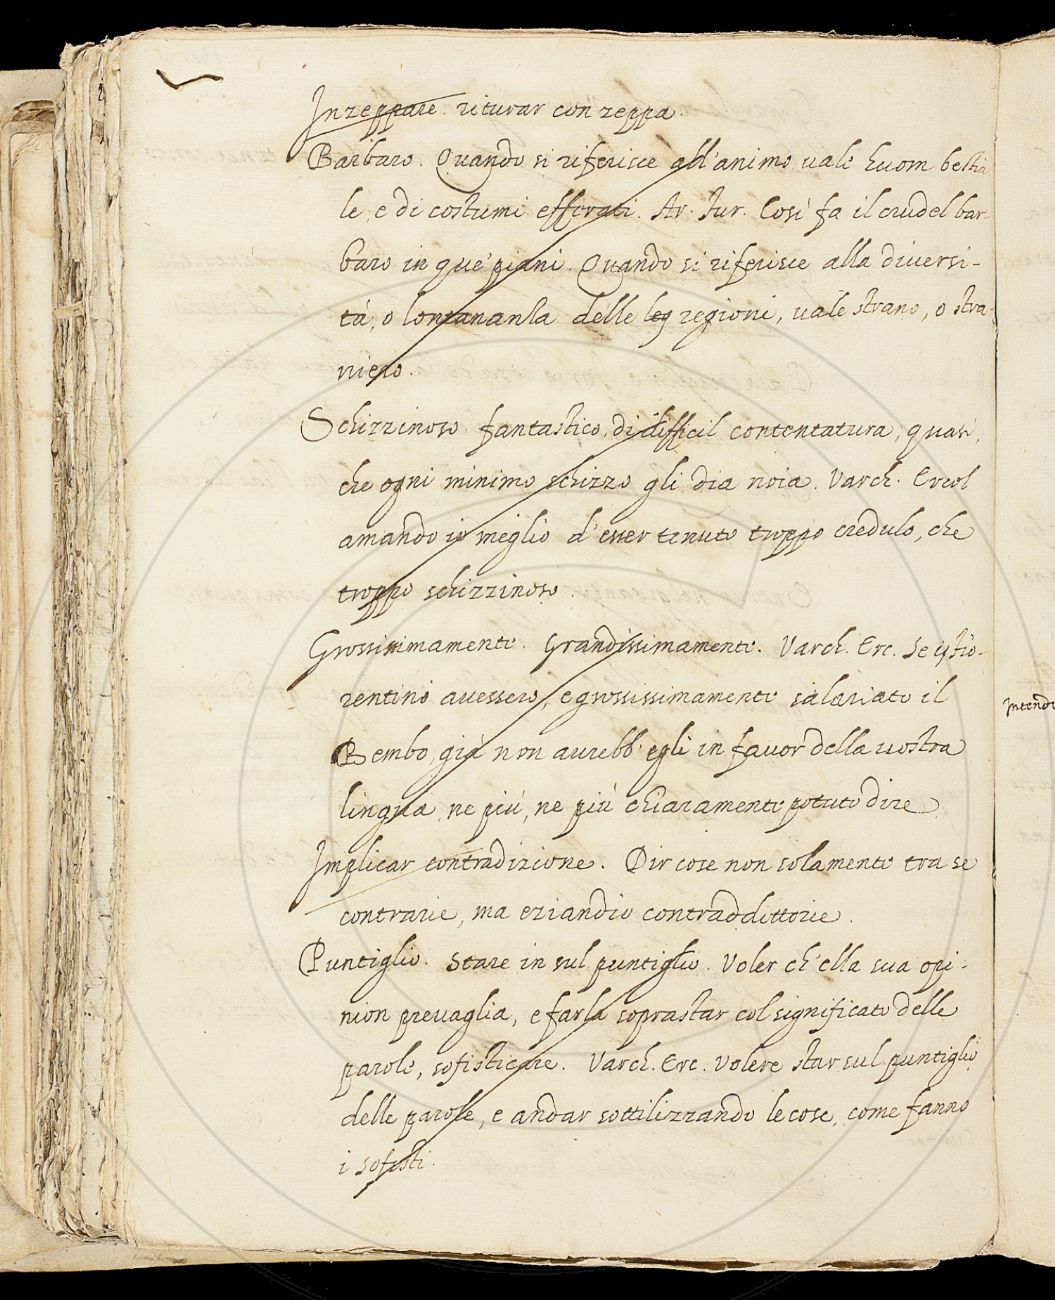 Inzeppare. riturar con zeppa.
Barbaro. Quando si riferisce all'animo, vale huom bestia
le, e di costumi efferati. Ar. fur. Cosi fa il crudel bar-
baro in que' piani. Quando si riferisce alla diversi-
tà, o lontananza delle leg regioni, vale strano, o stra-
niero.
Schizzinoso. fantastico, di difficil contentatura, quasi,
che ogni minimo schizzo gli dia noia. Varch. Ercol
amando io meglio d'esser tenuto troppo credulo, che
troppo schizzinoso.
Grossissimamente. Grandissimamente. Varch. Erc. Se i fio-
rentini avessero, e grossissimamente salariato il
Bembo, già non avrebb'egli in favor della vostra
lingua, ne più, ne più chiaramente potuto dire
Implicar contradizione. Dir cose non solamente tra se
contrarie, ma eziandio contraddittorie.
Puntiglio. Stare in sul puntiglio. Voler ch'ella sua opi-
nion prevaglia, e farla soprastar col significato delle
parole, sofisticare. Varch. Erc. Volere star sul puntiglio
delle parole, e andar sottilizzando le cose, come fanno
i sofisti.